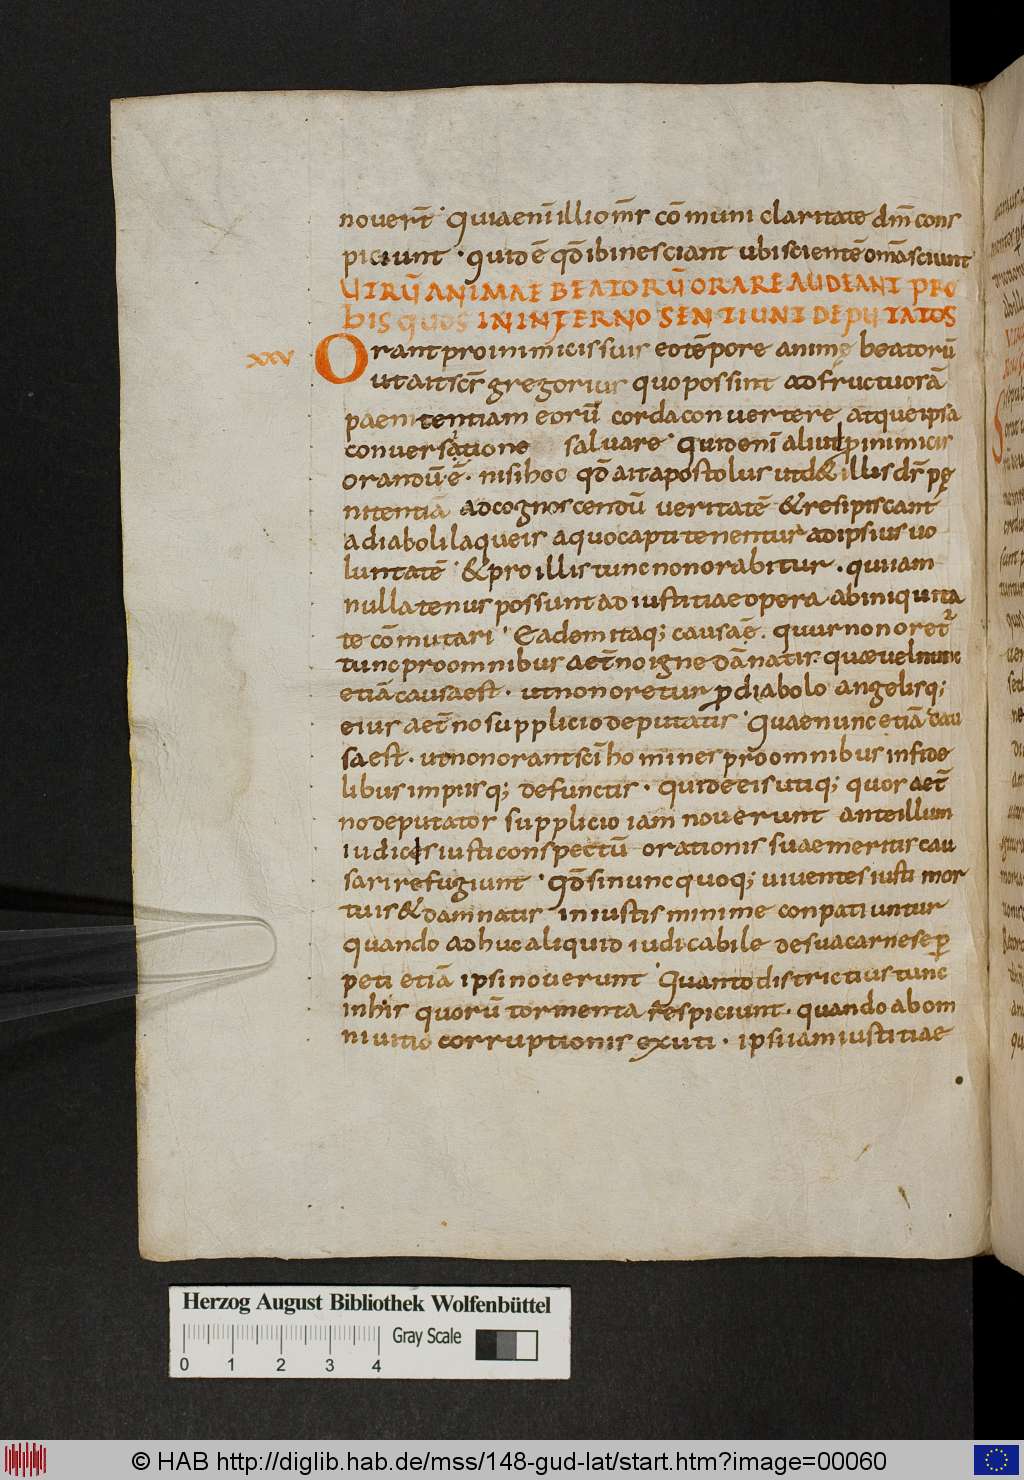 nouert̄ · Quia enī illi om̄s cōmuni claritate dm̄ cons
piciunt · quid ē qd̄ ibi nesciant ubi scientē oma sciunt
UTRŪ ANIMAE BEATORŪ ORARE AUDEANT PRO
BIS QUOS IN INFERNO SENTIUNT DEPUTATOS
XXV
Orant pro inimicis suis eo tēpore animę beatorū
ut ait scs̄ gregorius quo possint ad fructuosā
paenitentiam eorū corda convertere atque ipsa
conversatione salvare · Quid enī aliud pro inimicis
orandū ē · nisi hoc qd̄ ait apostolus ut d& illis ds̄ pę
nitentiā ad cognoscendū veritatē & resipiscant
a diaboli laqueis a quo capti tenentur ad ipsius uo
luntatē · & pro illis tunc non orabitur · qui iam
nullatenus possunt ad iustitiae opera ab iniquita
te cōmutari · Eadem itaq; causa ē · quur non oret̄
tunc pro omnibus aet̄no igne dānatis · quae vel nunc
etiā causa est · ut non oretur p diabolo angelisq;
eius aet̄no supplicio deputatis · Quae nunc etiā cau
sa est · ut non orant sc̄i homines pro omnibus infide
libus impiisq; defunctis · qui de eis utiq; quos aet̄
no deputatos supplicio iam noverunt ante illum
iudicis iusti conspectū orationis suae meritis cau
sari refugiunt · Qd̄ si nunc quoq; viventes iusti mor
tuis & damnatis iniustis minime conpatiuntur
quando adhuc aliquid iudicabile de sua carne se p
peti etiā ipsi noverunt · Quanto districtius tunc
in his quorū tormenta respiciunt · quando ab om
ni vitio corruptionis exuti · ipsi iam iustitiae
Herzog August Bibliothek Wolfenbüttel
Gray Scale
0 1 2 3 4
© HAB http://diglib.hab.de/mss/148-gud-lat/start.htm?image=00060